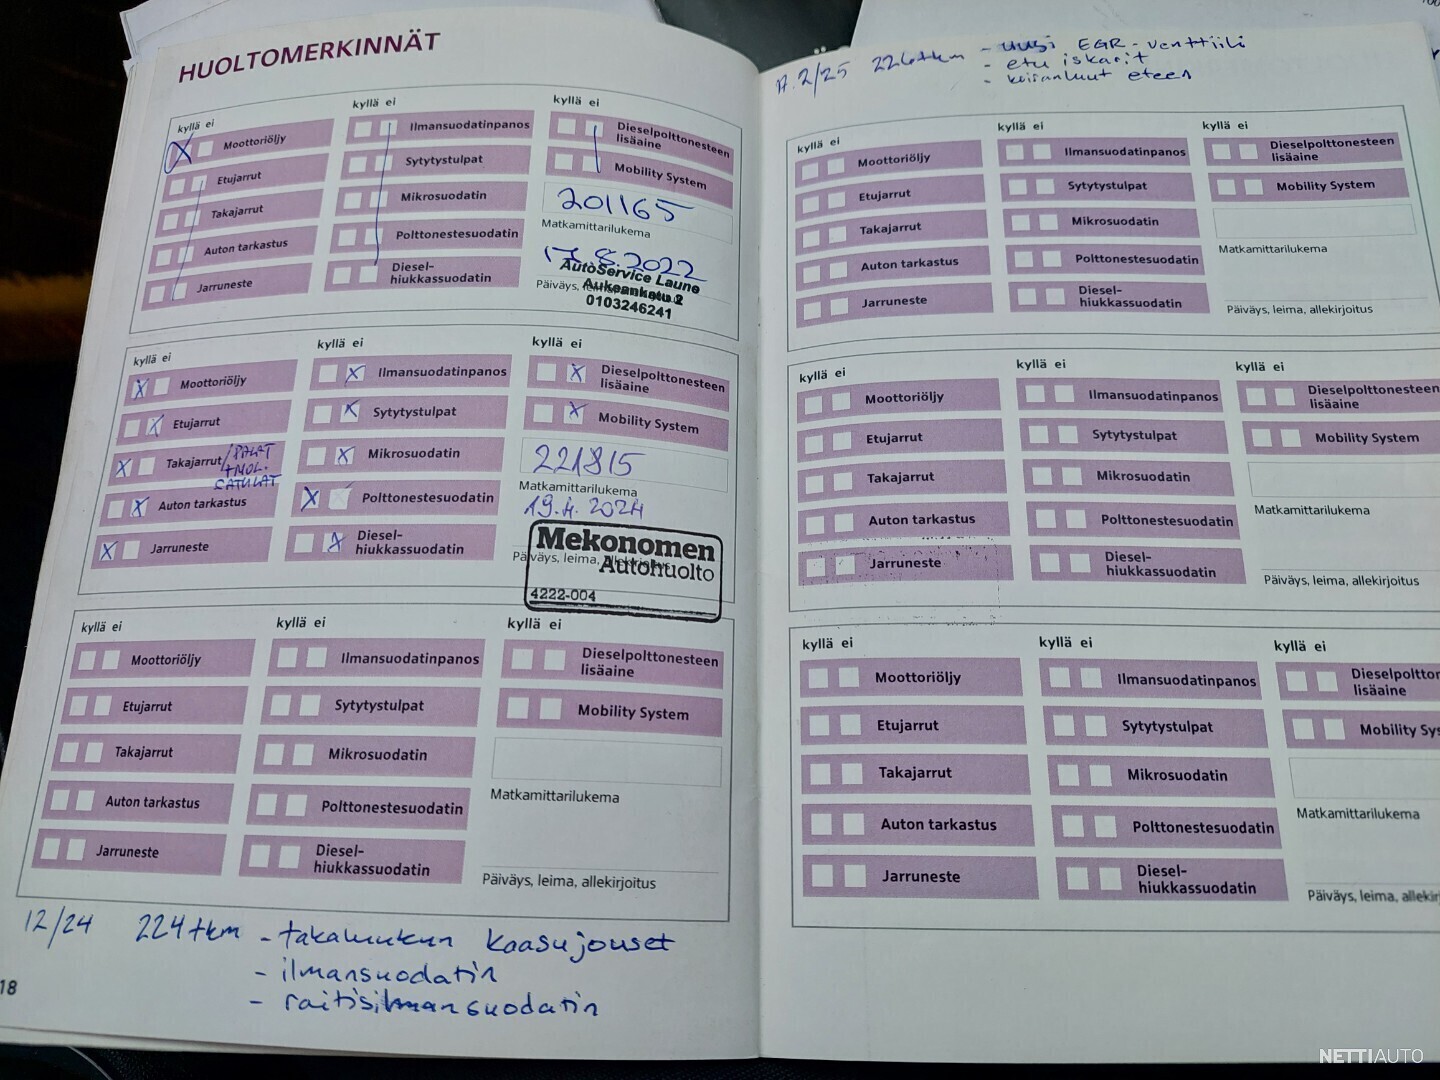 HUOLTOMERKINNÄT
kyllä ei
Moottoriöljy
Etujarrut
Takajarrut
Auton tarkastus
Jarruneste
kyllä ei
Ilmansuodatinpanos
Sytytystulpat
Mikrosuodatin
Polttonestesuodatin
Diesel-
hiukkassuodatin
kyllä ei
Dieselpolttonesteen
lisäaine
Mobility System
201165
Matkamittarilukema
17.8.2022
Päiväys, leima,
AutoService Laune
Aukeankatu 2
0103246241
kyllä ei
Moottoriöljy
Etujarrut
Takajarrut /PALAT
+MOL.
SATULAT
Auton tarkastus
Jarruneste
kyllä ei
Ilmansuodatinpanos
Sytytystulpat
Mikrosuodatin
Polttonestesuodatin
Diesel-
hiukkassuodatin
kyllä ei
Dieselpolttonesteen
lisäaine
Mobility System
221815
Matkamittarilukema
19.4.2024
Päiväys, leima, allekirjoitus
Mekonomen
Autohuolto
4222-004
kyllä ei
Moottoriöljy
Etujarrut
Takajarrut
Auton tarkastus
Jarruneste
kyllä ei
Ilmansuodatinpanos
Sytytystulpat
Mikrosuodatin
Polttonestesuodatin
Diesel-
hiukkassuodatin
kyllä ei
Dieselpolttonesteen
lisäaine
Mobility System
Matkamittarilukema
Päiväys, leima, allekirjoitus
12/24 224tkm - takaluukun kaasujouset
- ilmansuodatin
- raitisilmansuodatin
18
2/25 226tkm - uusi EGR-venttiili
- etu iskarit
- koiranluut eteen
kyllä ei
Moottoriöljy
Etujarrut
Takajarrut
Auton tarkastus
Jarruneste
kyllä ei
Ilmansuodatinpanos
Sytytystulpat
Mikrosuodatin
Polttonestesuodatin
Diesel-
hiukkassuodatin
kyllä ei
Dieselpolttonesteen
lisäaine
Mobility System
Matkamittarilukema
Päiväys, leima, allekirjoitus
kyllä ei
Moottoriöljy
Etujarrut
Takajarrut
Auton tarkastus
Jarruneste
kyllä ei
Ilmansuodatinpanos
Sytytystulpat
Mikrosuodatin
Polttonestesuodatin
Diesel-
hiukkassuodatin
kyllä ei
Dieselpolttonesteen
lisäaine
Mobility System
Matkamittarilukema
Päiväys, leima, allekirjoitus
kyllä ei
Moottoriöljy
Etujarrut
Takajarrut
Auton tarkastus
Jarruneste
kyllä ei
Ilmansuodatinpanos
Sytytystulpat
Mikrosuodatin
Polttonestesuodatin
Diesel-
hiukkassuodatin
kyllä ei
Dieselpolttor
lisäaine
Mobility Sys
Matkamittarilukema
Päiväys, leima, allekirj
NETTIAUTO